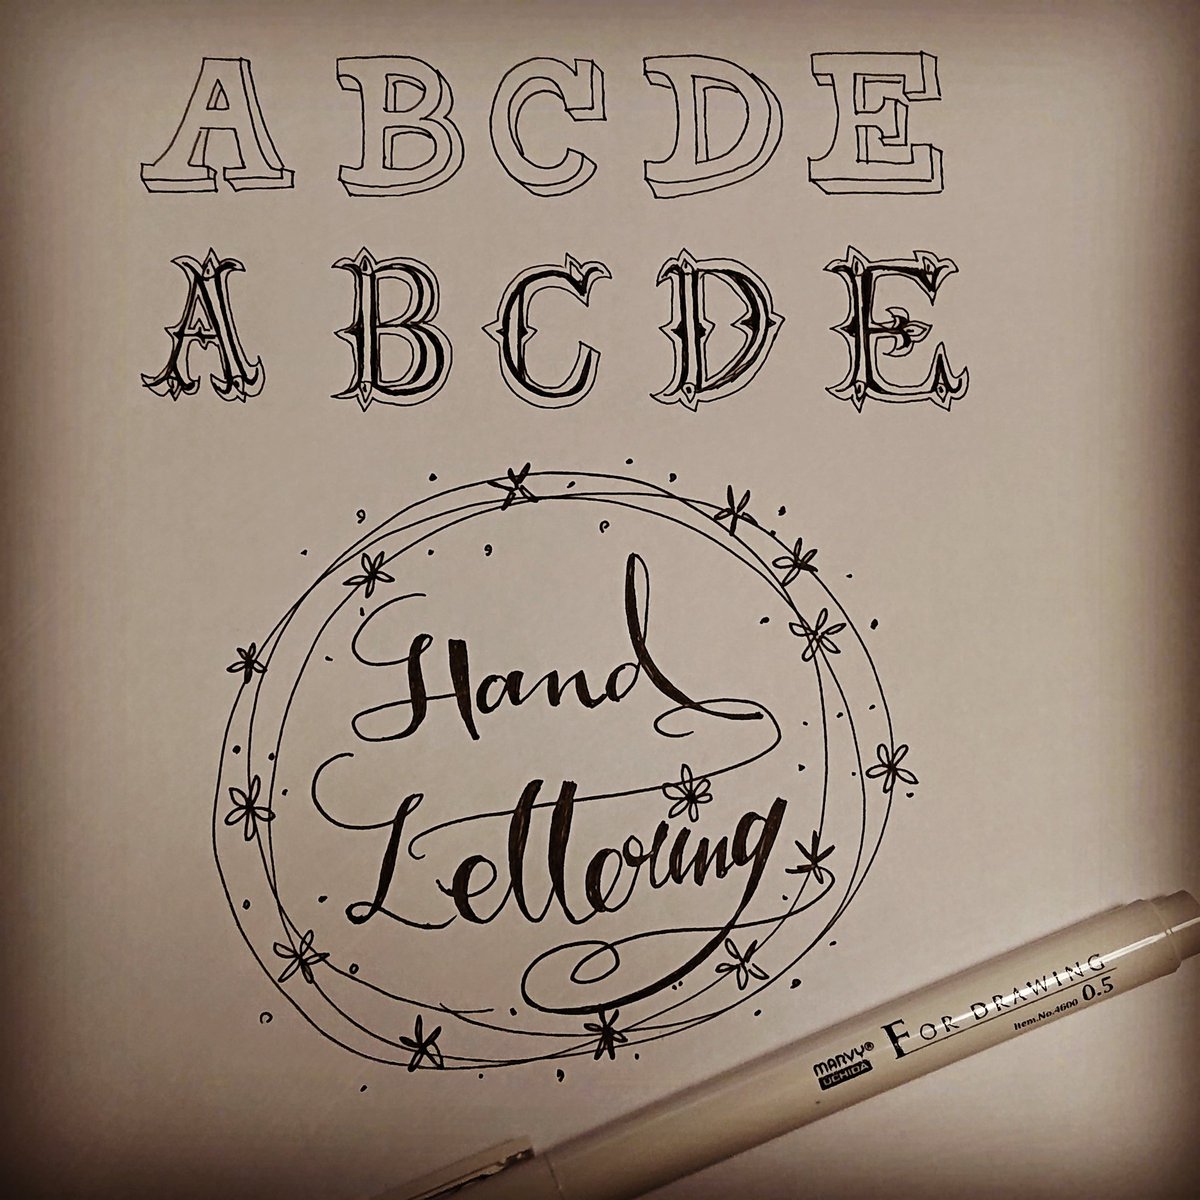 ABCDE
ABCDE
Hand
Lettering
MARVY®
UCHIDA
FOR DRAWING
Item.No.4600 0.5